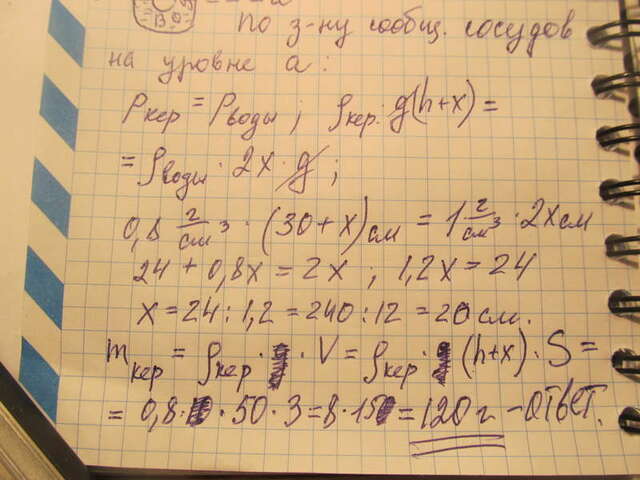 ВО
по з-ну сообщ. сосудов
на уровне а:
Pкер = Pводы; ρкер·g(h+x) =
= ρводы·2x·g;
0,8 г/см³ · (30+x)см = 1 г/см³ · 2x см
24 + 0,8x = 2x , 1,2x = 24
x = 24 : 1,2 = 240 : 12 = 20 см.
mкер = ρкер · V = ρкер · (h+x) · S =
= 0,8 · 50 · 3 = 8 · 15 = 120 г - ответ.